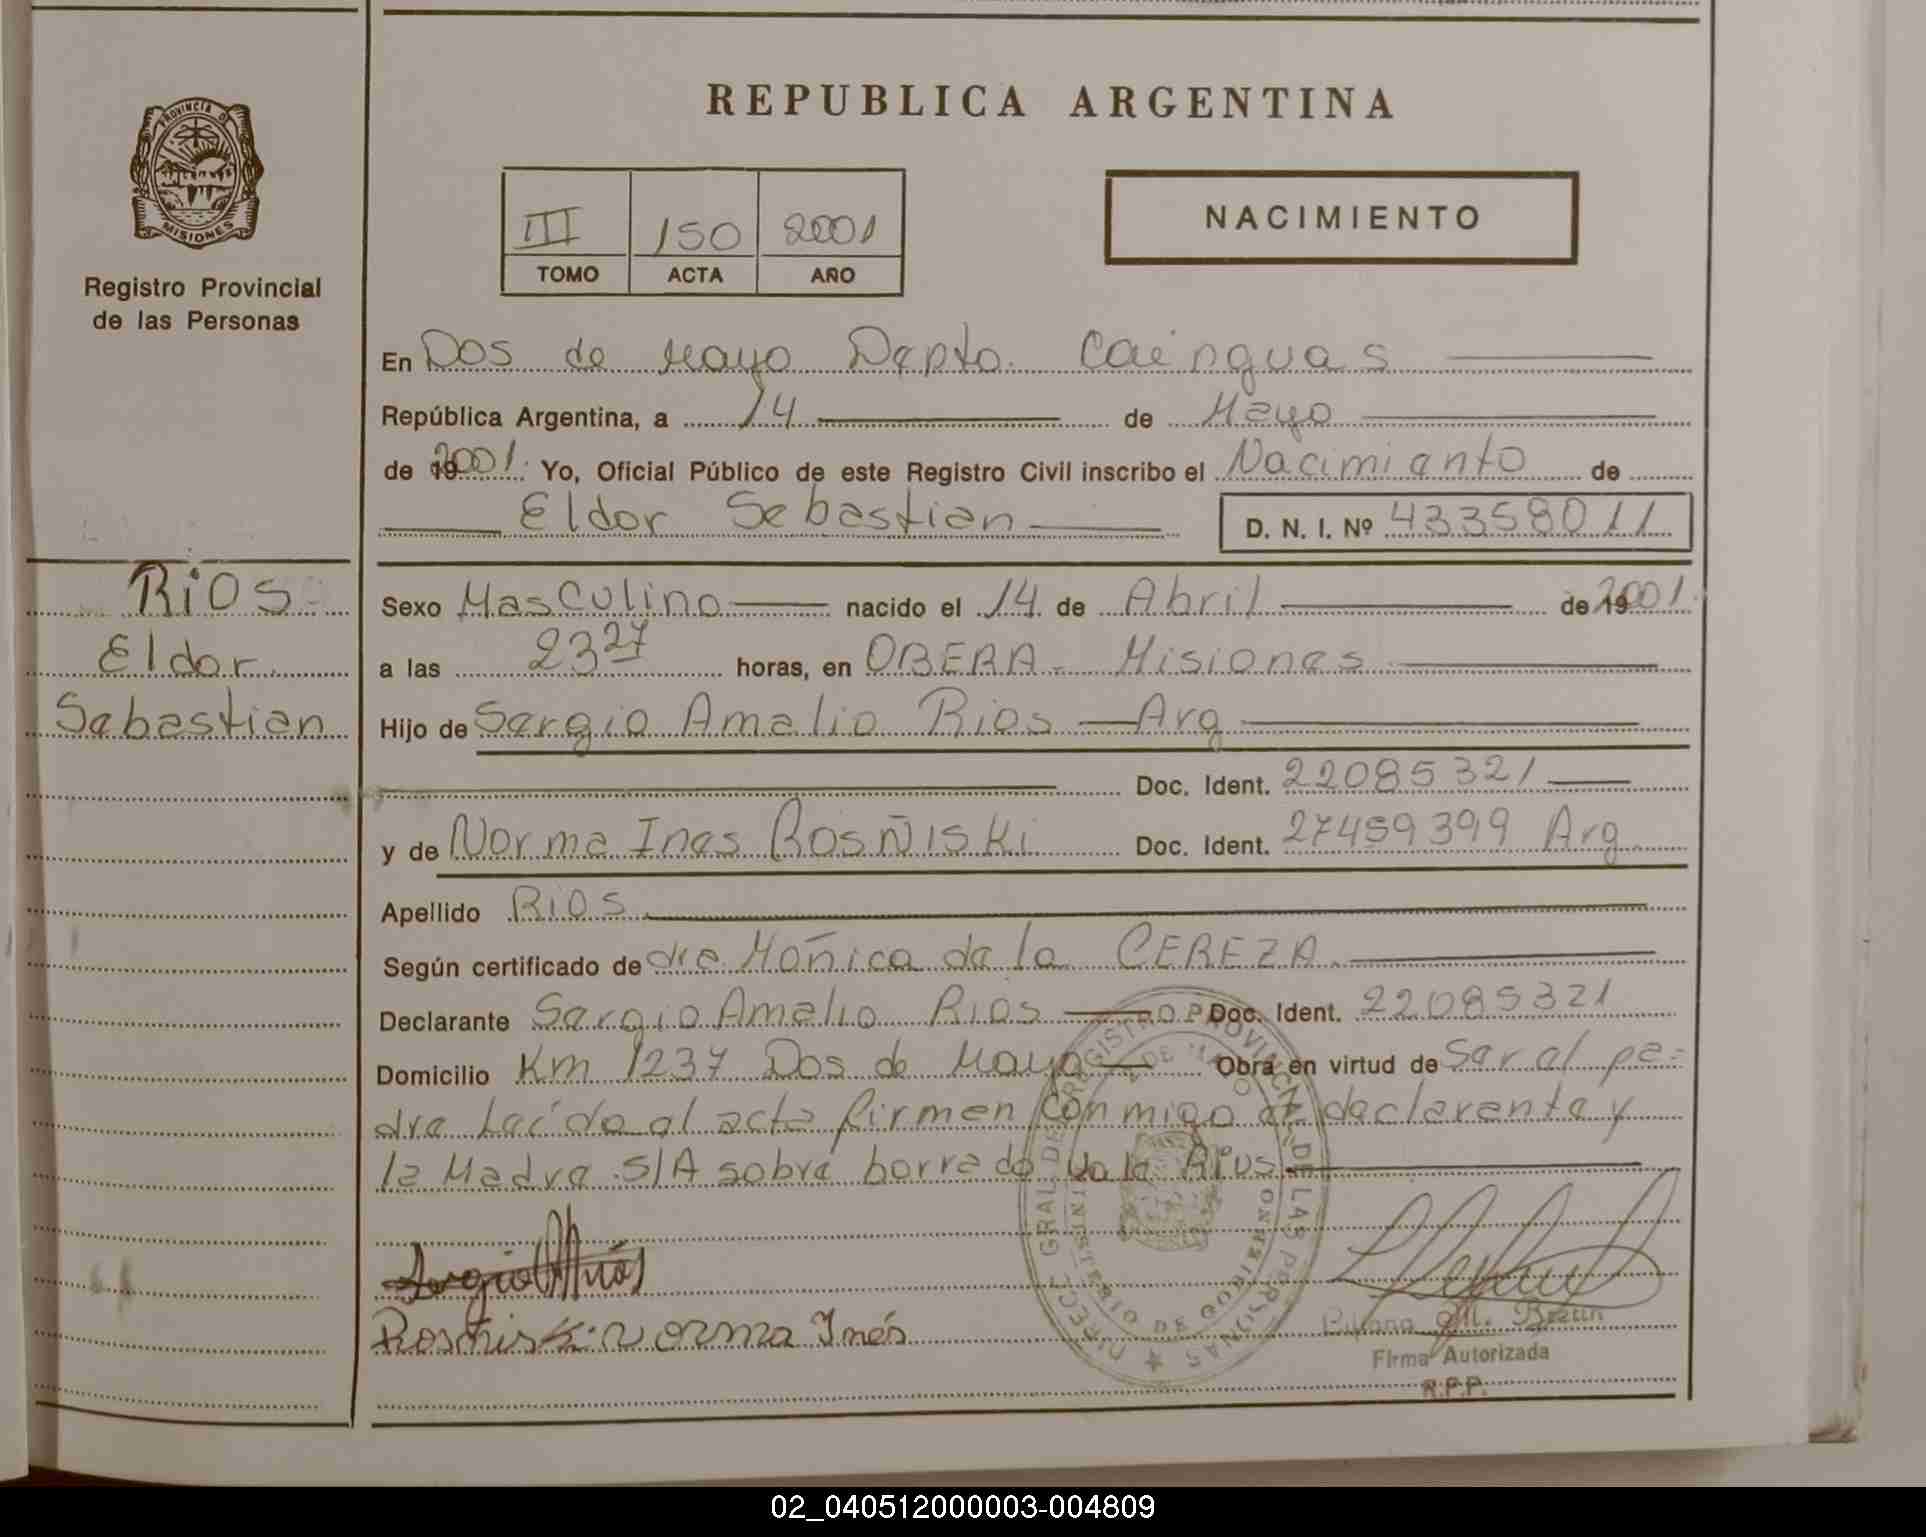 REPUBLICA ARGENTINA
PROVINCIA DE
MISIONES
Registro Provincial
de las Personas
III 150 2001
TOMO ACTA AÑO
NACIMIENTO
En Dos de Mayo Depto. Cainguas
República Argentina, a 14 de Mayo
de 19 2001. Yo, Oficial Público de este Registro Civil inscribo el Nacimiento de
Eldor Sebastian D. N. I. Nº 43358011
RIOS
Eldor
Sebastian
Sexo Masculino nacido el 14 de Abril de 19 2001
a las 23 27 horas, en OBERA - Misiones
Hijo de Sergio Amalio Rios - Arg
Doc. Ident. 22085321
y de Norma Ines ROSÑISKi Doc. Ident. 27459399 Arg
Apellido RIOS
Según certificado de dra Moñica de la CEREZA
Declarante Sergio Amalio Rios Doc. Ident. 22085321
Domicilio Km 1237 Dos de Mayo Obra en virtud de Ser el pa-
dre Leído el acta firman conmigo el declarante y
la Madre S/A sobre borrado vale Rios
DIRECC. GRAL. DEL REGISTRO PROVINCIAL DE LAS PERSONAS
Sergio A Rios
Rosñiski Norma Inés
M. Brettin
Firma Autorizada
R.P.P.
02_040512000003-004809